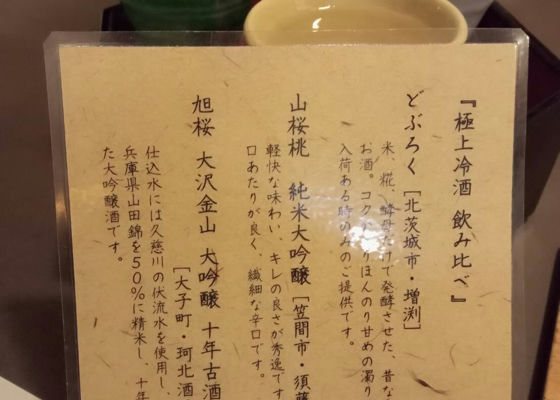 『極上冷酒 飲み比べ』
どぶろく [北茨城市・増渕]
米、糀、酵母だけで発酵させた、昔な
お酒。コクがありほんのり甘めの濁り
入荷ある時のみのご提供です。
山桜桃 純米大吟醸 [笠間市・須藤
軽快な味わい、キレの良さが秀逸です
口あたりが良く、繊細な辛口です。
旭桜 大沢金山 大吟醸 十年古酒
[大子町・珂北酒
仕込水には久慈川の伏流水を使用し、
兵庫県山田錦を50%に精米し、十年
た大吟醸酒です。